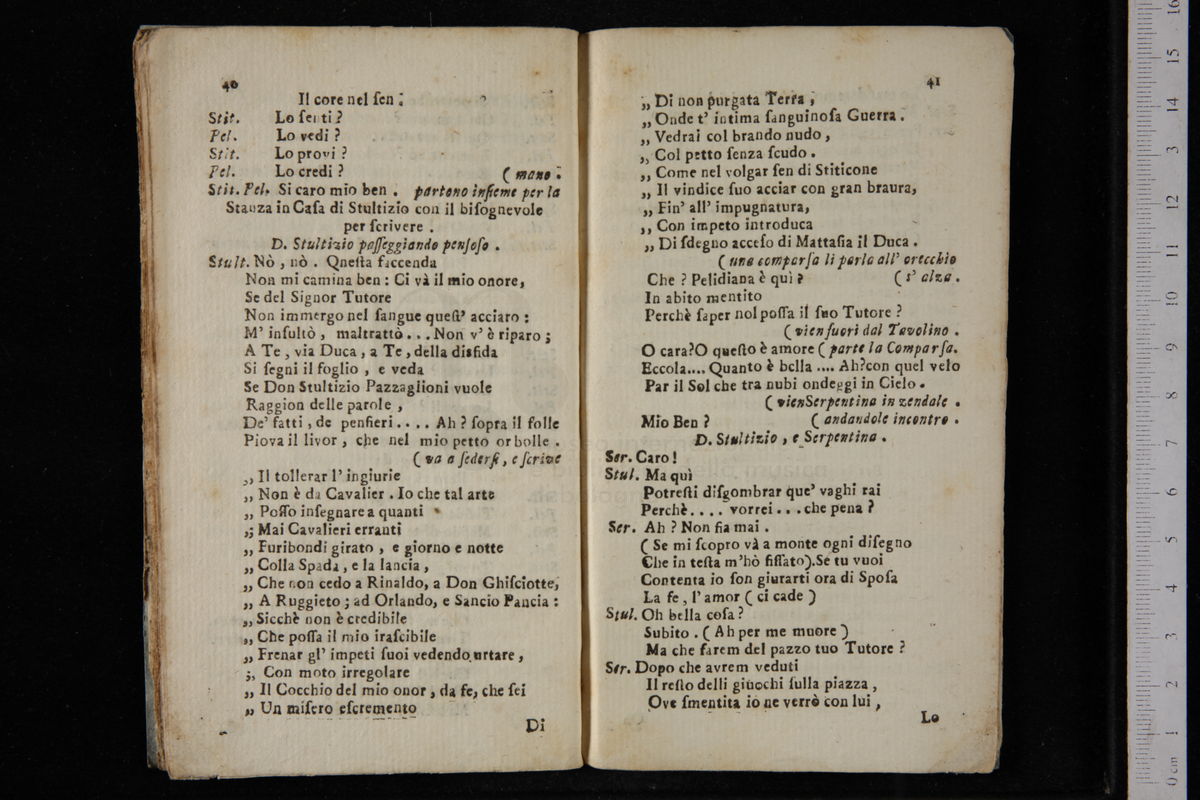 40
Il core nel ſen;
Stit. Lo ſenti?
Pel. Lo vedi?
Stit. Lo provi?
Pel. Lo credi? ( mano.
Stit. Pel. Si caro mio ben. partono inſieme per la
Stanza in Caſa di Stultizio con il biſognevole
per ſcrivere.
D. Stultizio paſſeggiando penſoſo.
Stult. Nò, nò. Queſta faccenda
Non mi camina ben: Ci và il mio onore,
Se del Signor Tutore
Non immergo nel ſangue queſt' acciaro:
M' inſultò, maltrattò... Non v' è riparo;
A Te, via Duca, a Te, della disfida
Si ſegni il foglio, e veda
Se Don Stultizio Pazzaglioni vuole
Raggion delle parole,
De' fatti, de penſieri.... Ah? ſopra il folle
Piova il livor, che nel mio petto or bolle.
( va a federſi, e ſcrive
„ Il tollerar l' ingiurie
„ Non è da Cavalier. Io che tal arte
„ Poſſo inſegnare a quanti
„ Mai Cavalieri erranti
„ Furibondi girato, e giorno e notte
„ Colla Spada, e la lancia,
„ Che non cedo a Rinaldo, a Don Ghiſciotte,
„ A Ruggieto; ad Orlando, e Sancio Pancia:
„ Sicchè non è credibile
„ Che poſſa il mio iraſcibile
„ Frenar gl' impeti ſuoi vedendo urtare,
„ Con moto irregolare
„ Il Cocchio del mio onor, da fe, che ſei
„ Un miſero eſcremento
Di
41
„ Di non purgata Terra,
„ Onde t' intima ſanguinoſa Guerra.
„ Vedrai col brando nudo,
„ Col petto ſenza ſcudo.
„ Come nel volgar ſen di Stiticone
„ Il vindice ſuo acciar con gran braura,
„ Fin' all' impugnatura,
„ Con impeto introduca
„ Di ſdegno acceſo di Mattaſia il Duca.
( una comparſa li parla all' orecchio
Che? Pelidiana è quì? ( s' alza.
In abito mentito
Perchè ſaper nol poſſa il ſuo Tutore?
( vien fuori dal Tavolino.
O cara? O queſto è amore ( parte la Comparſa.
Eccola.... Quanto è bella.... Ah? con quel velo
Par il Sol che tra nubi ondeggi in Cielo.
( vien Serpentina in zendale.
Mio Ben? ( andandole incontro.
D. Stultizio, e Serpentina.
Ser. Caro!
Stul. Ma quì
Potreſti diſgombrar que' vaghi rai
Perchè.... vorrei... che pena?
Ser. Ah? Non fia mai.
( Se mi ſcopro và a monte ogni diſegno
Che in teſta m'hò fiſſato). Se tu vuoi
Contenta io ſon giurarti ora di Spoſa
La fe, l' amor ( ci cade )
Stul. Oh bella coſa?
Subito. ( Ah per me muore )
Ma che farem del pazzo tuo Tutore?
Ser. Dopo che avrem veduti
Il reſto delli giuochi ſulla piazza,
Ove ſmentita io ne verrò con lui,
Lo